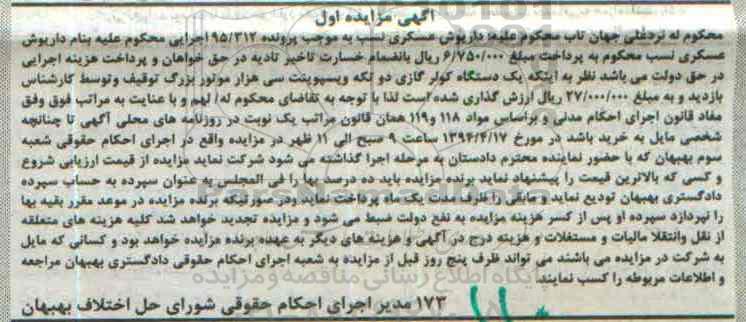 آگهی مزایده اول
محکوم له نردعلی جهان تاب محکوم علیه: داریوش عسکری نسب به موجب پرونده ۹۵/۳۱۲ اجرایی محکوم علیه بنام داریوش
عسکری نسب محکوم به پرداخت مبلغ ۶/۷۵۰/۰۰۰ ریال بانضمام خسارت تاخیر تادیه در حق خواهان و پرداخت هزینه اجرایی
در حق دولت می باشد نظر به اینکه یک دستگاه کولر گازی دو تکه ویسپوینت سی هزار موتور بزرگ توقیف وتوسط کارشناس
بازدید و به مبلغ ۲۷/۰۰۰/۰۰۰ ریال ارزش گذاری شده است لذا با توجه به تقاضای محکوم له/ لهم و با عنایت به مراتب فوق وفق
مفاد قانون اجرای احکام مدنی و براساس مواد ۱۱۸ و۱۱۹ همان قانون مراتب یک نوبت در روزنامه های محلی آگهی تا چنانچه
شخصی مایل به خرید باشد در مورخ ۱۳۹۴/۴/۱۷ ساعت ۹ صبح الی ۱۱ ظهر در مزایده واقع در اجرای احکام حقوقی شعبه
سوم بهبهان که با حضور نماینده محترم دادستان به مرحله اجرا گذاشته می شود شرکت نماید مزایده از قیمت ارزیابی شروع
و کسی که بالاترین قیمت را پیشنهاد نماید برنده مزایده باید ده درصد بها را فی المجلس به عنوان سپرده به حساب سپرده
دادگستری بهبهان تودیع نماید و مابقی را ظرف مدت یک ماه پرداخت نماید ودر صورتیکه برنده مزایده در موعد مقرر بقیه بها
را نپردازد سپرده او پس از کسر هزینه مزایده به نفع دولت ضبط می شود و مزایده تجدید خواهد شد کلیه هزینه های متعلقه
از نقل وانتقلا مالیات و مستغلات و هزینه درج در آگهی و هزینه های دیگر به عهده برنده مزایده خواهد بود و کسانی که مایل
به شرکت در مزایده می باشند می تواند ظرف پنج روز قبل از مزایده به شعبه اجرای احکام حقوقی دادگستری بهبهان مراجعه
و اطلاعات مربوطه را کسب نمایند
۱۷۳ مدیر اجرای احکام حقوقی شورای حل اختلاف بهبهان